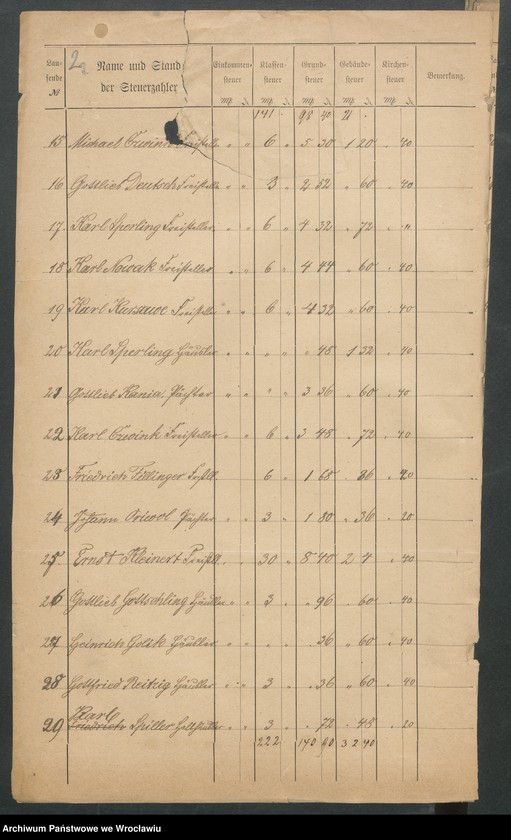 2
Lau-
fende
№
Name und Stand
der Steuerzahler
Einkommen-
steuer
Klassen-
steuer
Grund-
steuer
Gebäude-
steuer
Kirchen-
steuer
Bemerkung.
141 . 98 40 21 .
15 Michael 6 " 5 30 1 20 " 40
16 Gottlieb Deutsch Freisteller " " 3 " 2 52 " 60 " 40
17. Karl Sperling Freisteller " " 6 " 4 32 " 72 " "
18 Karl Nowak Freisteller " " 6 " 4 44 " 60 " 40
19 Karl Freisteller " " 6 " 4 32 " 60 " 40
20 Karl Sperling Häusler " " " " " 48 1 32 " 40
21 Gottlieb Kania Pächter " " " " 3 36 " 60 " 40
22 Karl Freisteller " " 6 " 3 48 " 72 " 40
23 Friedrich " " 6 " 1 68 " 86 " 40
24 Johann Pächter " " 3 " 1 80 " 36 " 20
25 Ernst Kleinert " " 30 " 8 40 2 4 " 40
26 Gottlieb Gottschling Häusler " " 3 " " 96 " 60 " 40
27 Heinrich Golik Häusler " " " " " 36 " 60 " 40
28 Gottfried Reitzig Häusler " " 3 " " 36 " 60 " 40
Karl
29 Friedrich Spiller " " 3 " " 72 " 48 " 20
222 140 60 32 40
Archiwum Państwowe we Wrocławiu